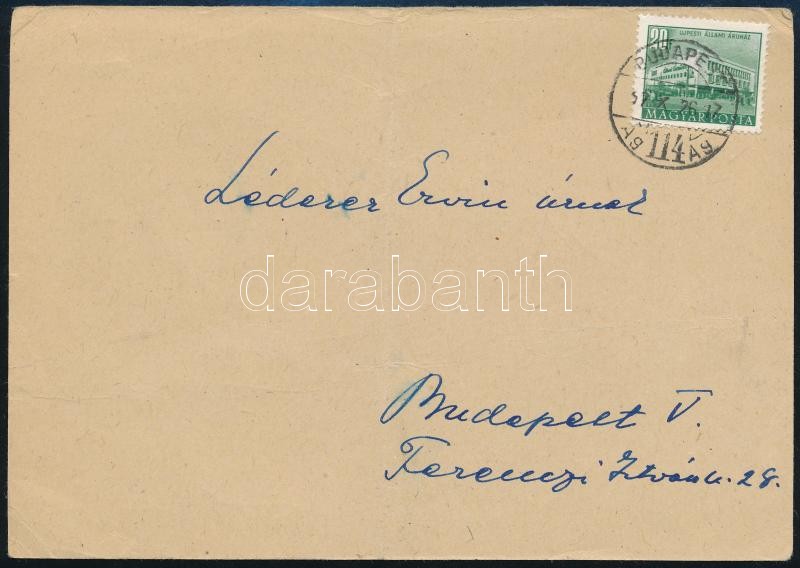 20f
ÚJPESTI ÁLLAMI ÁRUHÁZ
MAGYAR POSTA
BUDAPEST
114
Léderer Ervin úrnak
darabanth
Budapest V.
Ferenczi István u. 28.